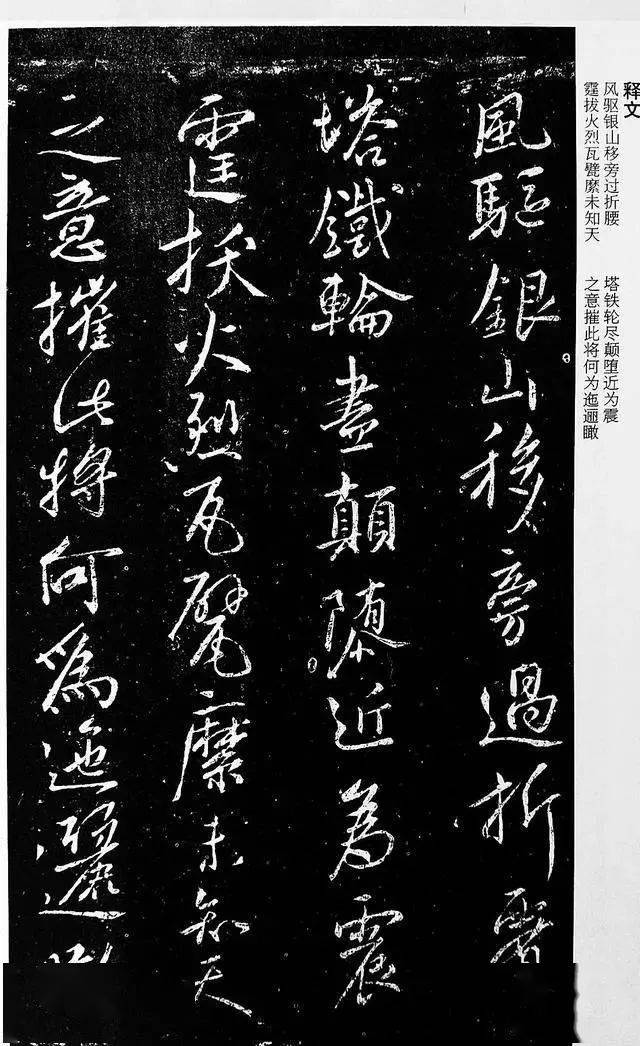 释文
风驱银山移旁过折腰
塔铁轮尽颠堕近为震
霆拔火烈瓦甓縻未知天
之意摧此将何为迤逦瞰
風驅銀山移旁過折
塔鐵輪盡顛墮近為震
霆拔火烈瓦甓縻未知天
之意摧此將何為迤邐